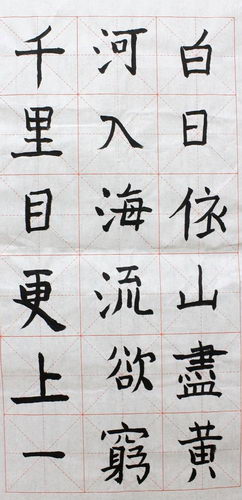 白日依山盡黄
河入海流欲窮
千里目更上一